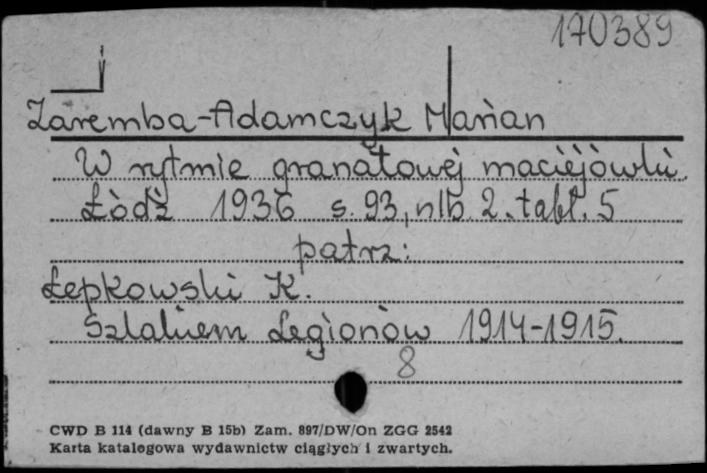 170389
Zaremba-Adamczyk Marian
W rytmie granatowej maciejówki.
Łódź 1936 s. 93, nlb. 2. tabl. 5
patrz:
Łepkowski K.
Szlakiem Legionów 1914-1915.
8
CWD B 114 (dawny B 15b) Zam. 897/DW/On ZGG 2542
Karta katalogowa wydawnictw ciągłych i zwartych.